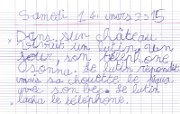 Samedi 14 mars 2015
Dans un château
vivait un lutin. Qon
son téléphone
sonna. Le lutin répondit
mais sa chouette le
avec son bec. Le lutin
lacha le téléphone.